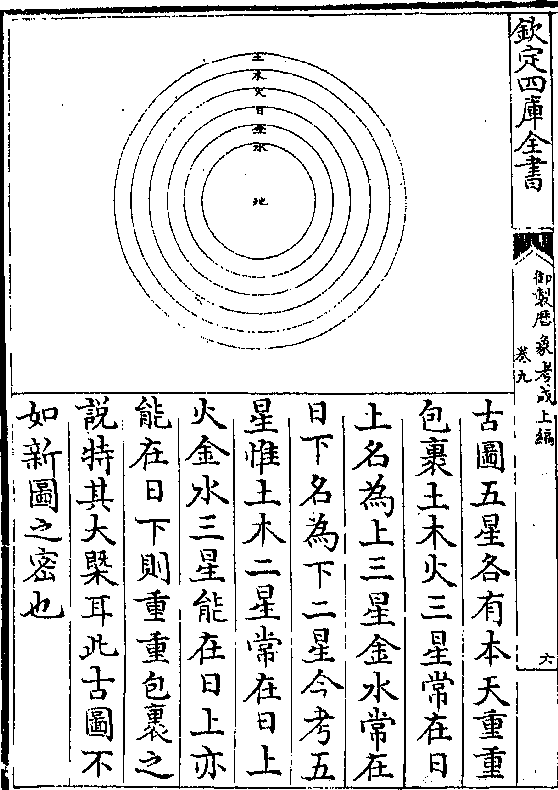 欽定四庫全書
御製厯象考成上編
卷九
六
土
木
火
日
金
水
地
古圖五星各有本天重重
包裹土木火三星常在日
上名為上三星金水常在
日下名為下二星今考五
星惟土木二星常在日上
火金水三星能在日上亦
能在日下則重重包裹之
說特其大槩耳此古圖不
如新圖之密也